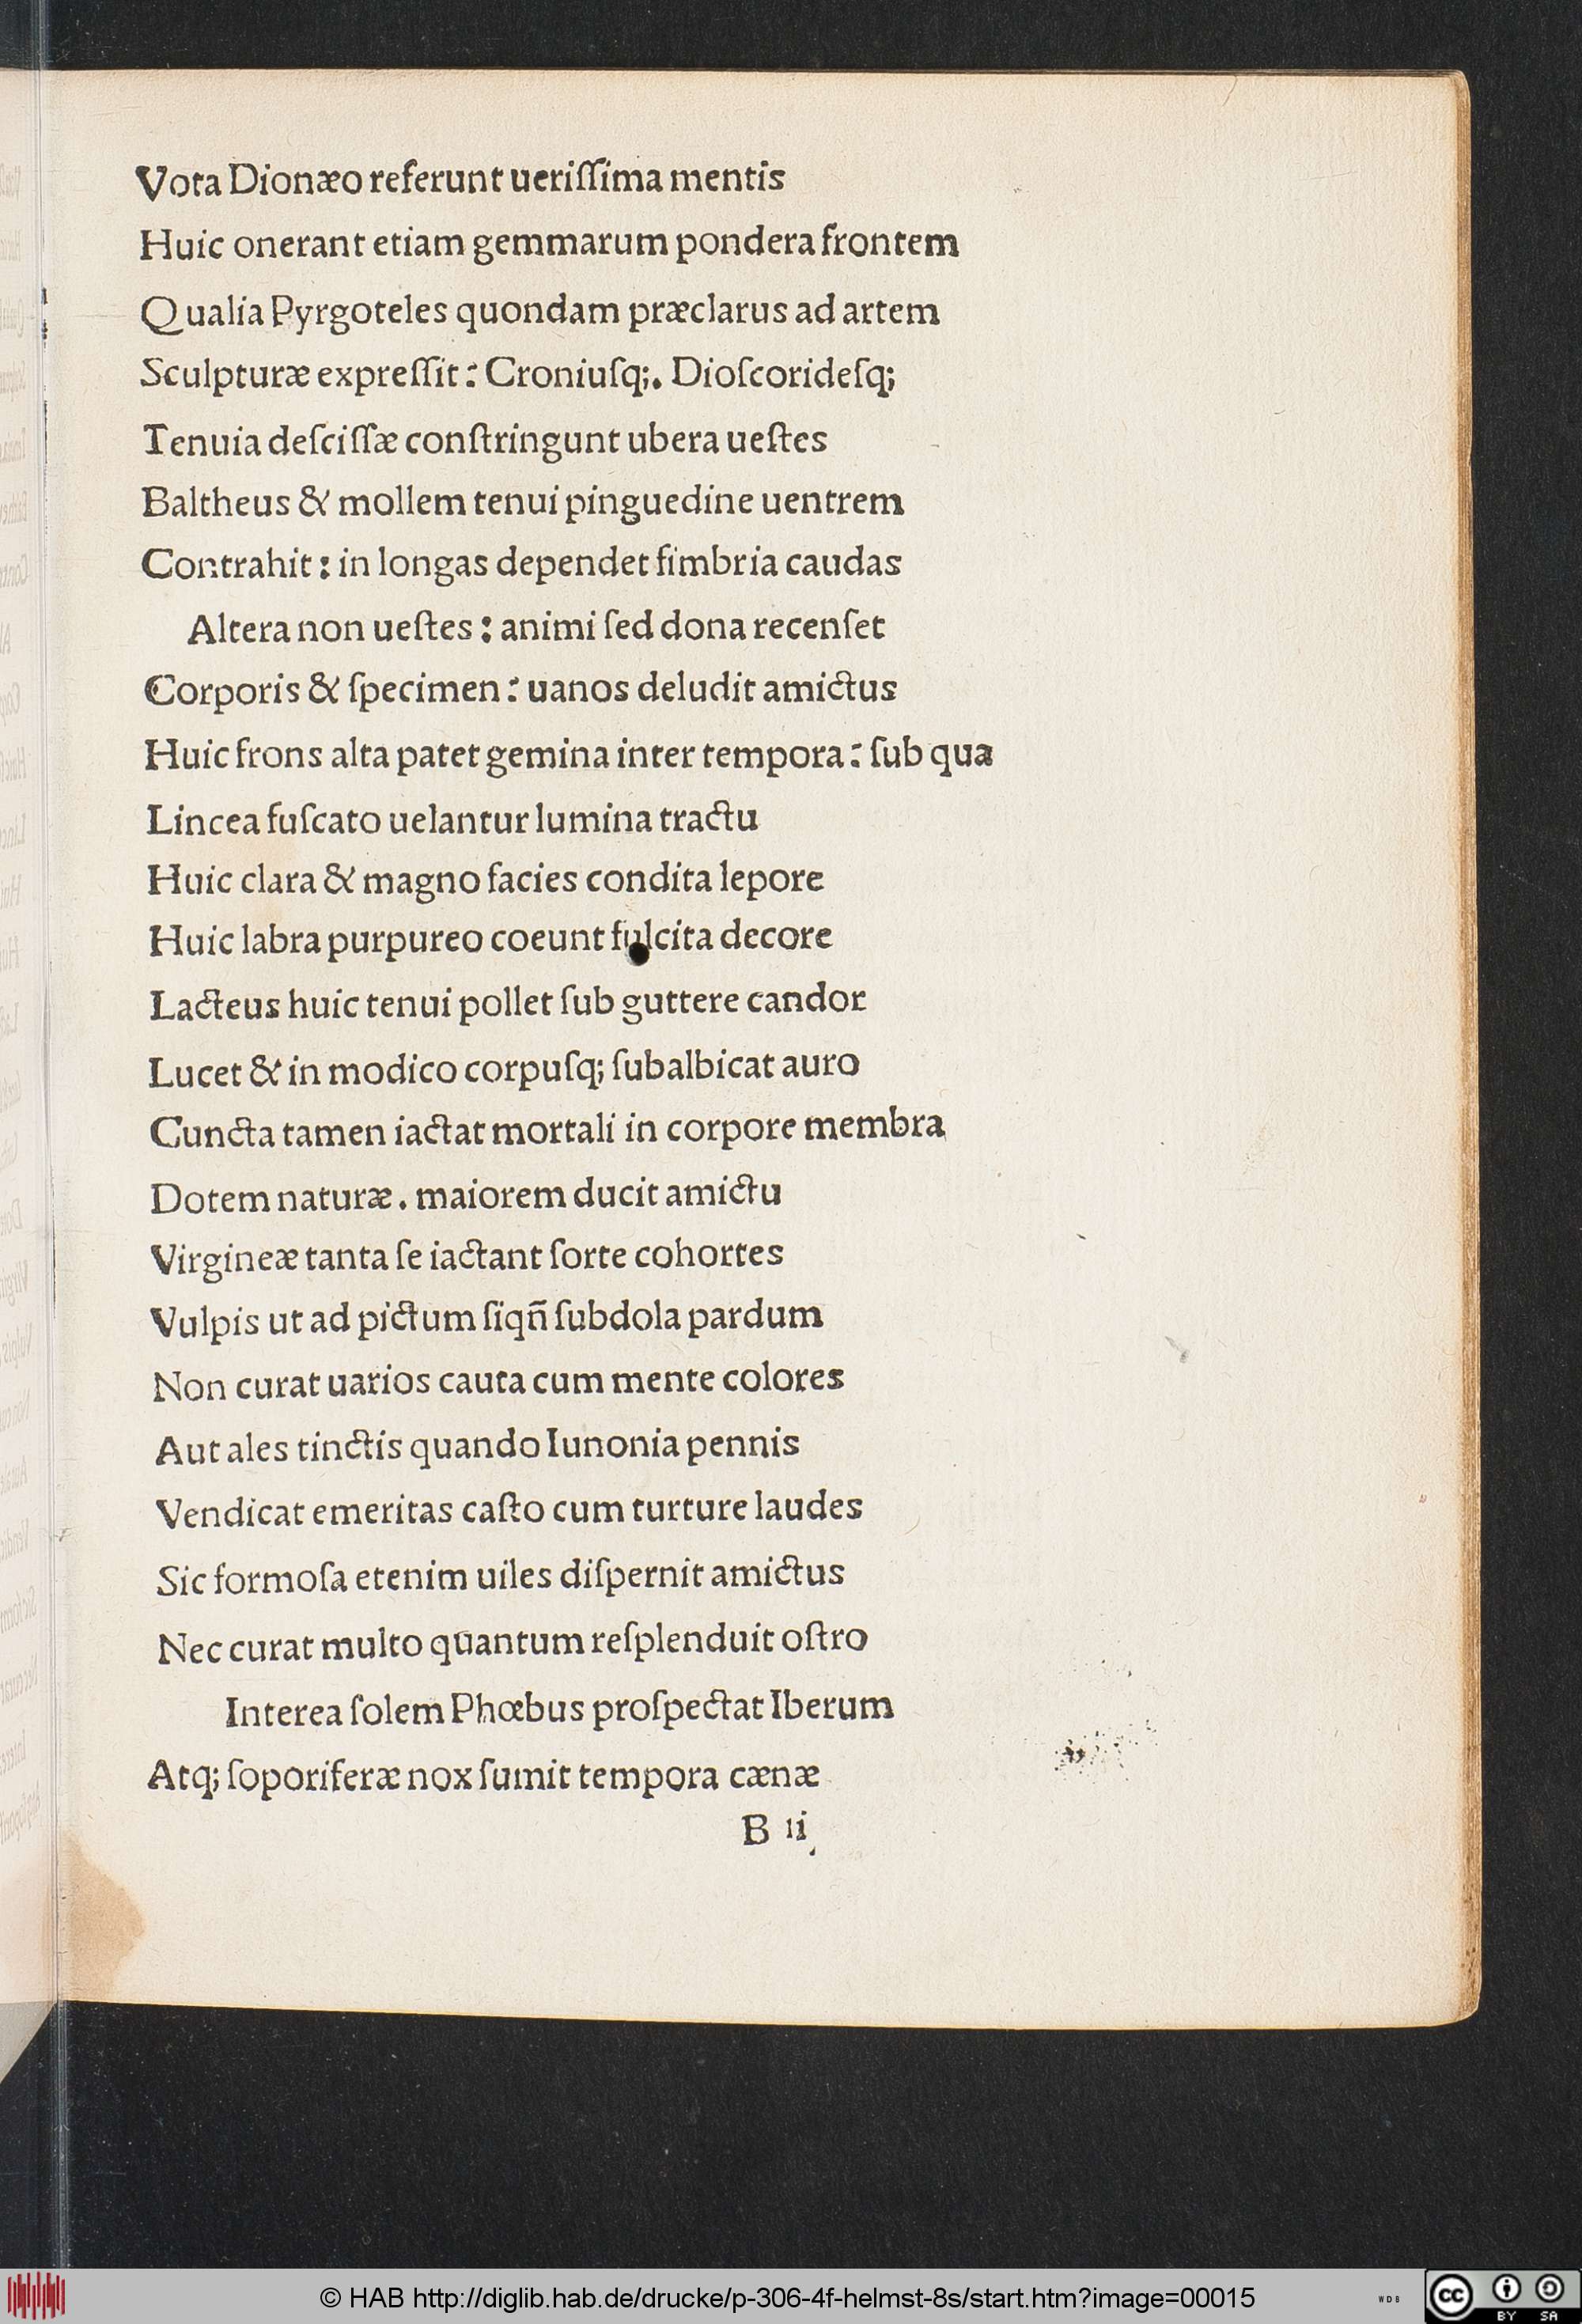 Vota Dionæo referunt ueriſſima mentis
Huic onerant etiam gemmarum pondera frontem
Qualia Pyrgoteles quondam præclarus ad artem
Sculpturæ expreſſit: Croniuſq;. Dioſcorideſq;
Tenuia deſciſſæ conſtringunt ubera ueſtes
Baltheus & mollem tenui pinguedine uentrem
Contrahit: in longas dependet fimbria caudas
Altera non ueſtes: animi ſed dona recenſet
Corporis & ſpecimen: uanos deludit amictus
Huic frons alta patet gemina inter tempora: ſub qua
Lincea fuſcato uelantur lumina tractu
Huic clara & magno facies condita lepore
Huic labra purpureo coeunt fulcita decore
Lacteus huic tenui pollet ſub guttere candor
Lucet & in modico corpuſq; ſubalbicat auro
Cuncta tamen iactat mortali in corpore membra
Dotem naturæ. maiorem ducit amictu
Virgineæ tanta ſe iactant ſorte cohortes
Vulpis ut ad pictum ſiqñ ſubdola pardum
Non curat uarios cauta cum mente colores
Aut ales tinctis quando Iunonia pennis
Vendicat emeritas caſto cum turture laudes
Sic formoſa etenim uiles diſpernit amictus
Nec curat multo quantum reſplenduit oſtro
Interea ſolem Phœbus proſpectat Iberum
Atq; ſoporiferæ nox ſumit tempora cænæ
B ii
© HAB http://diglib.hab.de/drucke/p-306-4f-helmst-8s/start.htm?image=00015
WDB
cc BY SA